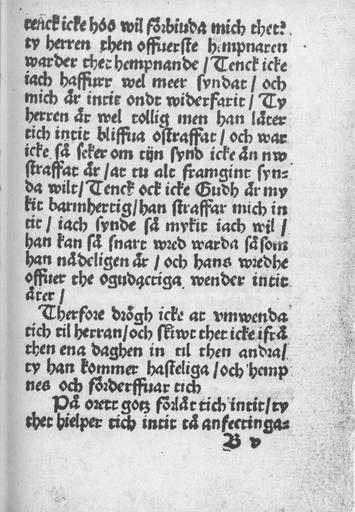 tenck icke hoo wil förbinda mich thet?
ty herren then offuerste hempnaren
warder thet hempnande / Tenck icke
iach haffurr wel meer syndat / och
mich är intit ondt widerfarit / Ty
herren är wel tollig men han låter
tich intit bliffua ostraffat / och war
icke så seker om tijn synd icke än nw
straffat är / at tu alt framgint syn-
da wilt / Tenck ock icke Gudh är my
kit barmhertig / han straffar mich in
tit / iach synde så mykit iach wil /
han kan så snart wred warda såsom
han nådeligen är / och hans wredhe
offuer the ogudactiga wender intit
åter /
Therfore drögh icke at vmwenda
tich til herran / och skiwt thet icke ifrå
then ena daghen in til then andra /
ty han kommer hasteliga / och hemp
nes och förderffuar tich
På orett gotz förlåt tich intit / ty
thet hielper tich intit tå anfectinga-
B v